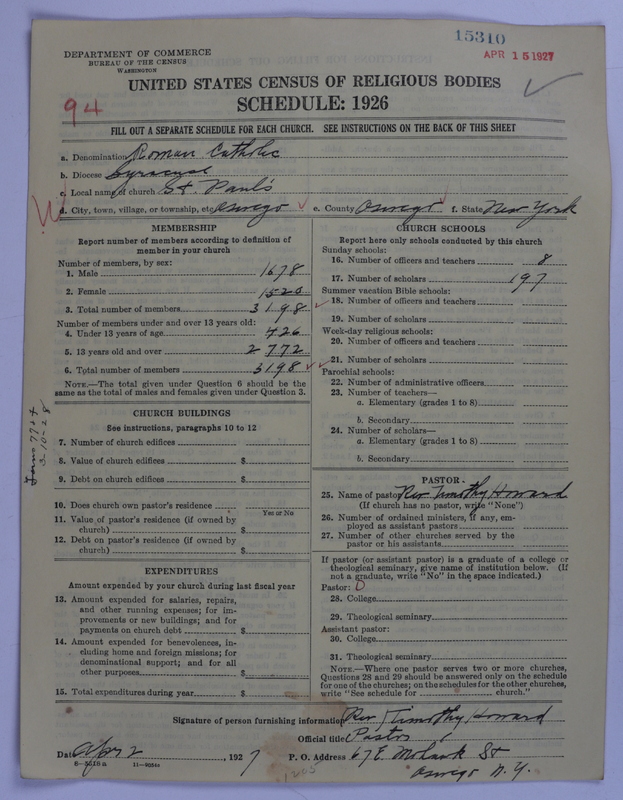 15310
APR 15 1927
DEPARTMENT OF COMMERCE
BUREAU OF THE CENSUS
WASHINGTON
UNITED STATES CENSUS OF RELIGIOUS BODIES
SCHEDULE: 1926
94
FILL OUT A SEPARATE SCHEDULE FOR EACH CHURCH. SEE INSTRUCTIONS ON THE BACK OF THIS SHEET
a. Denomination Roman Catholic
b. Diocese Syracuse
c. Local name of church St. Paul's
d. City, town, village, or township, etc. Oswego e. County Oswego f. State New York
MEMBERSHIP
Report number of members according to definition of
member in your church
Number of members, by sex:
1. Male 1678
2. Female 1520
3. Total number of members 3198
Number of members under and over 13 years old:
4. Under 13 years of age 426
5. 13 years old and over 2772
6. Total number of members 3198
NOTE.—The total given under Question 6 should be the
same as the total of males and females given under Question 3.
CHURCH BUILDINGS
See instructions, paragraphs 10 to 12
7. Number of church edifices
8. Value of church edifices $
9. Debt on church edifices $
10. Does church own pastor's residence
Yes or No
11. Value of pastor's residence (if owned by
church) $
12. Debt on pastor's residence (if owned by
church) $
EXPENDITURES
Amount expended by your church during last fiscal year
13. Amount expended for salaries, repairs,
and other running expenses; for im-
provements or new buildings; and for
payments on church debt $
14. Amount expended for benevolences, in-
cluding home and foreign missions; for
denominational support; and for all
other purposes $
15. Total expenditures during year $
CHURCH SCHOOLS
Report here only schools conducted by this church
Sunday schools:
16. Number of officers and teachers 8
17. Number of scholars 197
Summer vacation Bible schools:
18. Number of officers and teachers
19. Number of scholars
Week-day religious schools:
20. Number of officers and teachers
21. Number of scholars
Parochial schools:
22. Number of administrative officers
23. Number of teachers—
a. Elementary (grades 1 to 8)
b. Secondary
24. Number of scholars—
a. Elementary (grades 1 to 8)
b. Secondary
PASTOR
25. Name of pastor Rev Timothy Howard
(If church has no pastor, write "None")
26. Number of ordained ministers, if any, em-
ployed as assistant pastors
27. Number of other churches served by the
pastor or his assistants
If pastor (or assistant pastor) is a graduate of a college or
theological seminary, give name of institution below. (If
not a graduate, write "No" in the space indicated.)
Pastor: 0
28. College
29. Theological seminary
Assistant pastor:
30. College
31. Theological seminary
NOTE.—Where one pastor serves two or more churches,
Questions 28 and 29 should be answered only on the schedule
for one of the churches; on the schedules for the other churches,
write "See schedule for church."
Signature of person furnishing information Rev Timothy Howard
Official title Pastor
Date Apr 2, 1927 P. O. Address 67 E. Mohawk St
8-3518a 11-9654a Oswego N.Y.
1205
3-10-28